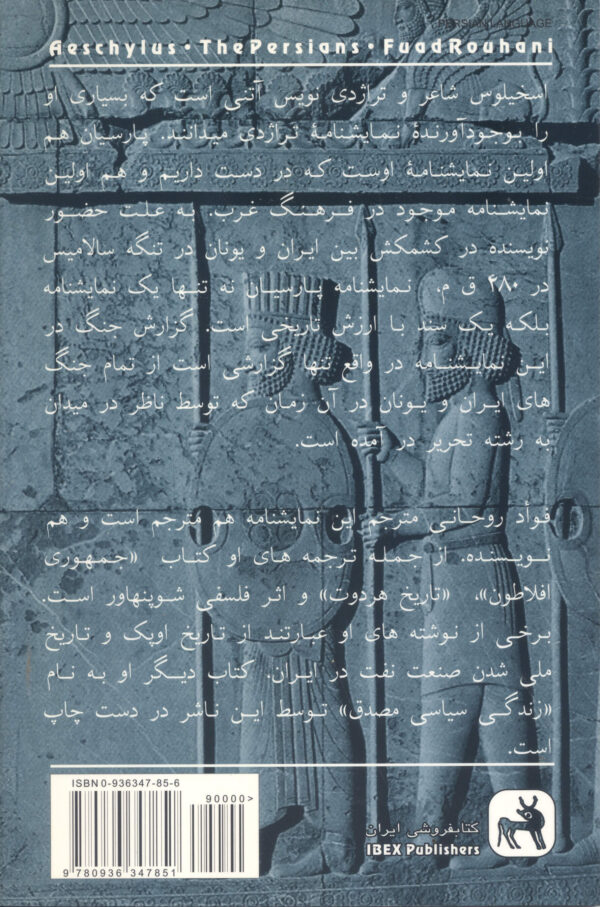 PERSIAN LANGUAGE
Aeschylus • The Persians • Fuad Rouhani
اسخیلوس شاعر و تراژدی نویس آتنی است که بسیاری او
را بوجودآورندهٔ نمایشنامهٔ تراژدی میدانند. پارسیان هم
اولین نمایشنامهٔ اوست که در دست داریم و هم اولین
نمایشنامه موجود در فرهنگ غرب. به علت حضور
نویسنده در کشمکش بین ایران و یونان در تنگه سالامیس
در ۴۸۰ ق م. نمایشنامه پارسیان نه تنها یک نمایشنامه
بلکه یک سند با ارزش تاریخی است. گزارش جنگ در
این نمایشنامه در واقع تنها گزارشی است از تمام جنگ
های ایران و یونان در آن زمان که توسط ناظر در میدان
به رشته تحریر در آمده است.
فوأد روحانی مترجم این نمایشنامه هم مترجم است و هم
نویسنده. از جمله ترجمه های او کتاب «جمهوری
افلاطون»، «تاریخ هردوت» و اثر فلسفی شوپنهاور است.
برخی از نوشته های او عبارتند از تاریخ اوپک و تاریخ
ملی شدن صنعت نفت در ایران. کتاب دیگر او به نام
«زندگی سیاسی مصدق» توسط این ناشر در دست چاپ
است.
ISBN 0-936347-85-6
90000>
9 780936 347851
کتابفروشی ایران
IBEX Publishers